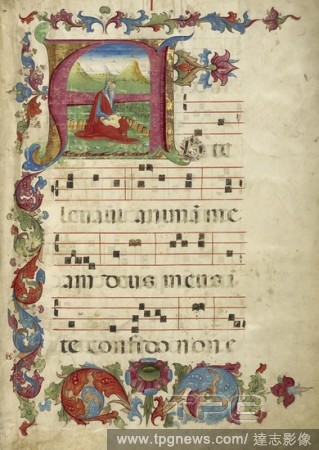 Ad te
leuaui animã me
am deus meus i
te confido non e
TPG
www.tpgnews.com / 達志影像